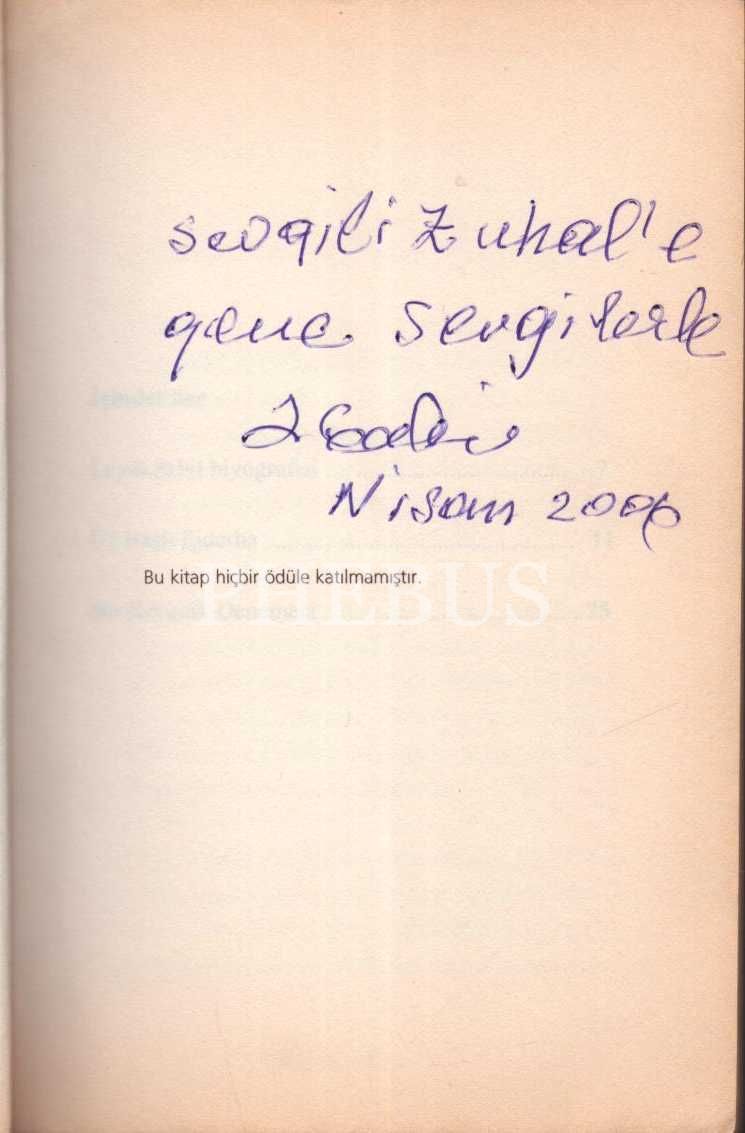 sevgili Zuhal'e
genç sevgilerle
Nisan 2006
Bu kitap hiçbir ödüle katılmamıştır.
PHEBUS